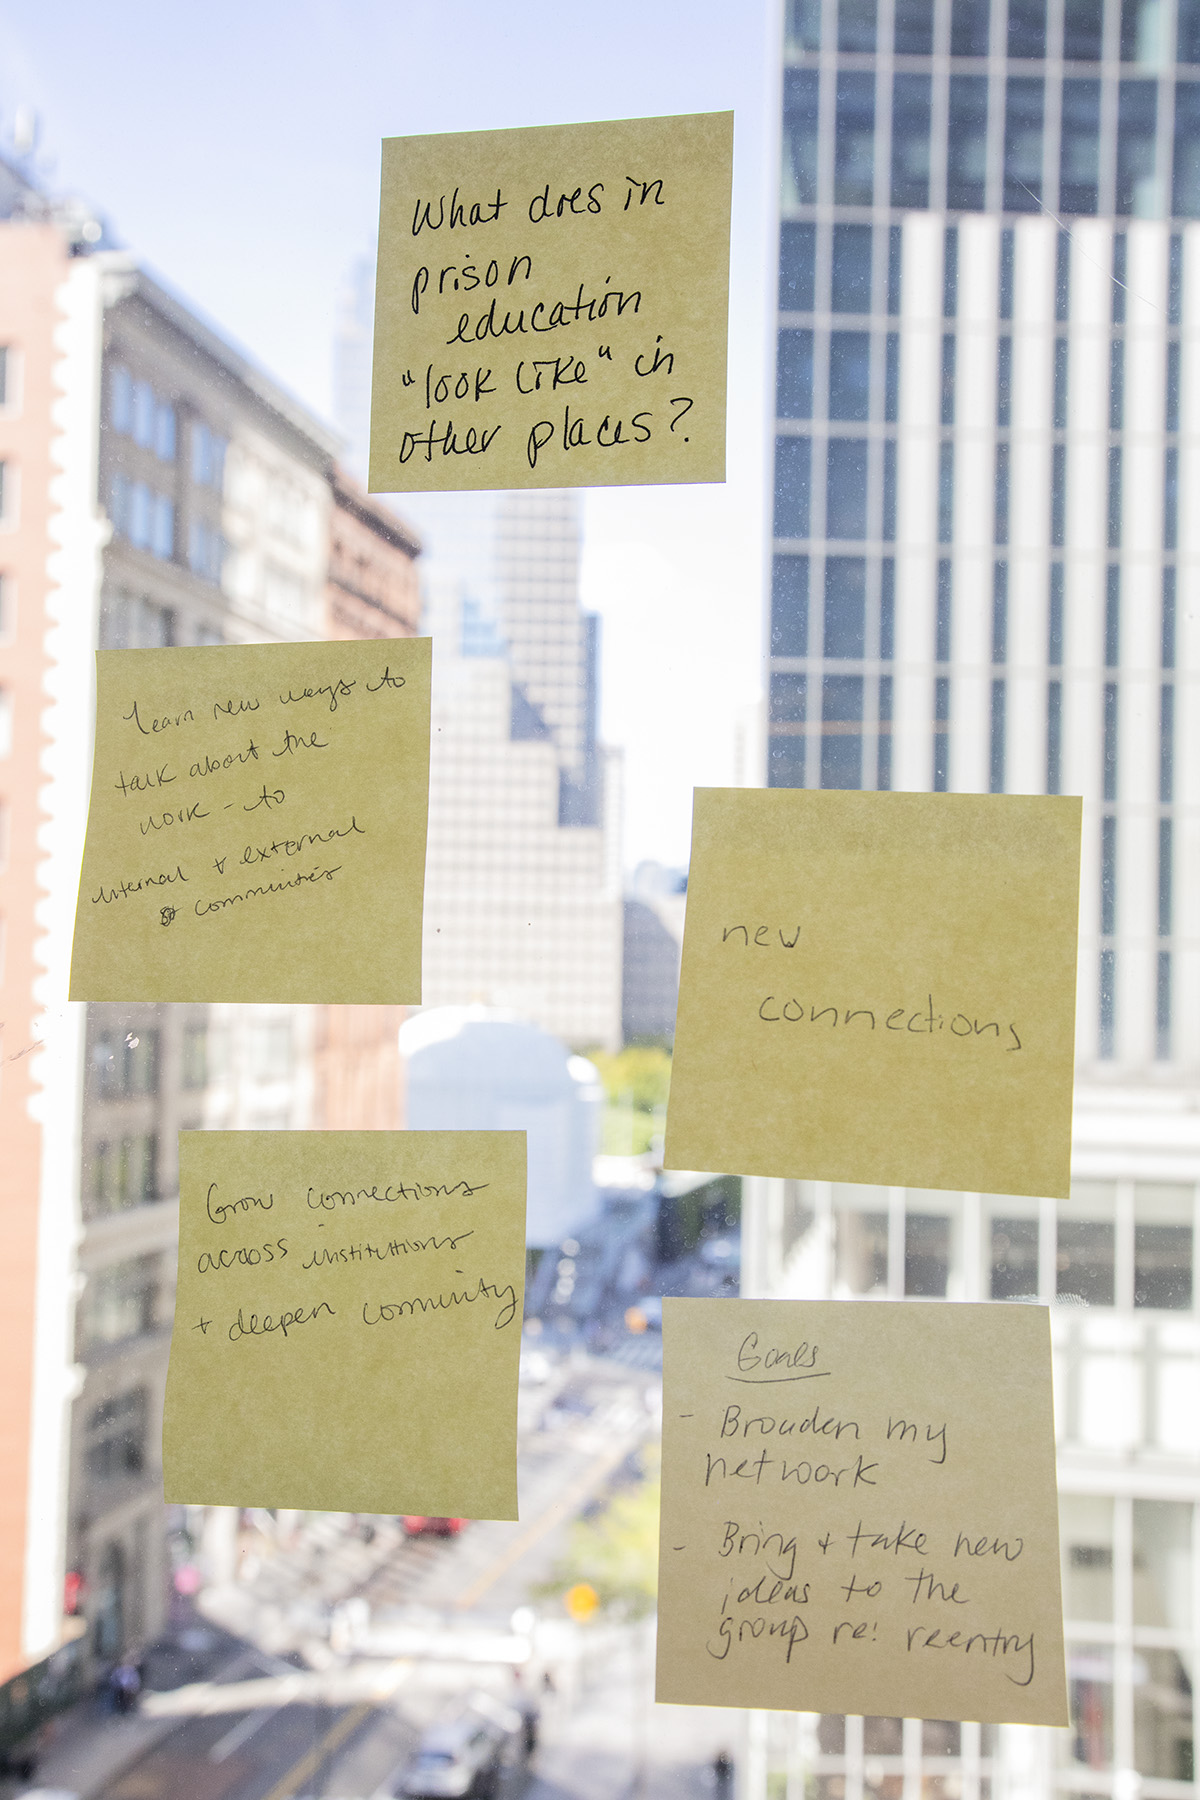 What does in
prison
education
"look like" in
other places?
learn new ways to
talk about the
work - to
internal + external
communities
new
connections
Grow connections
across institutions
+ deepen community
Goals
- Broaden my
network
- Bring + take new
ideas to the
group re: reentry